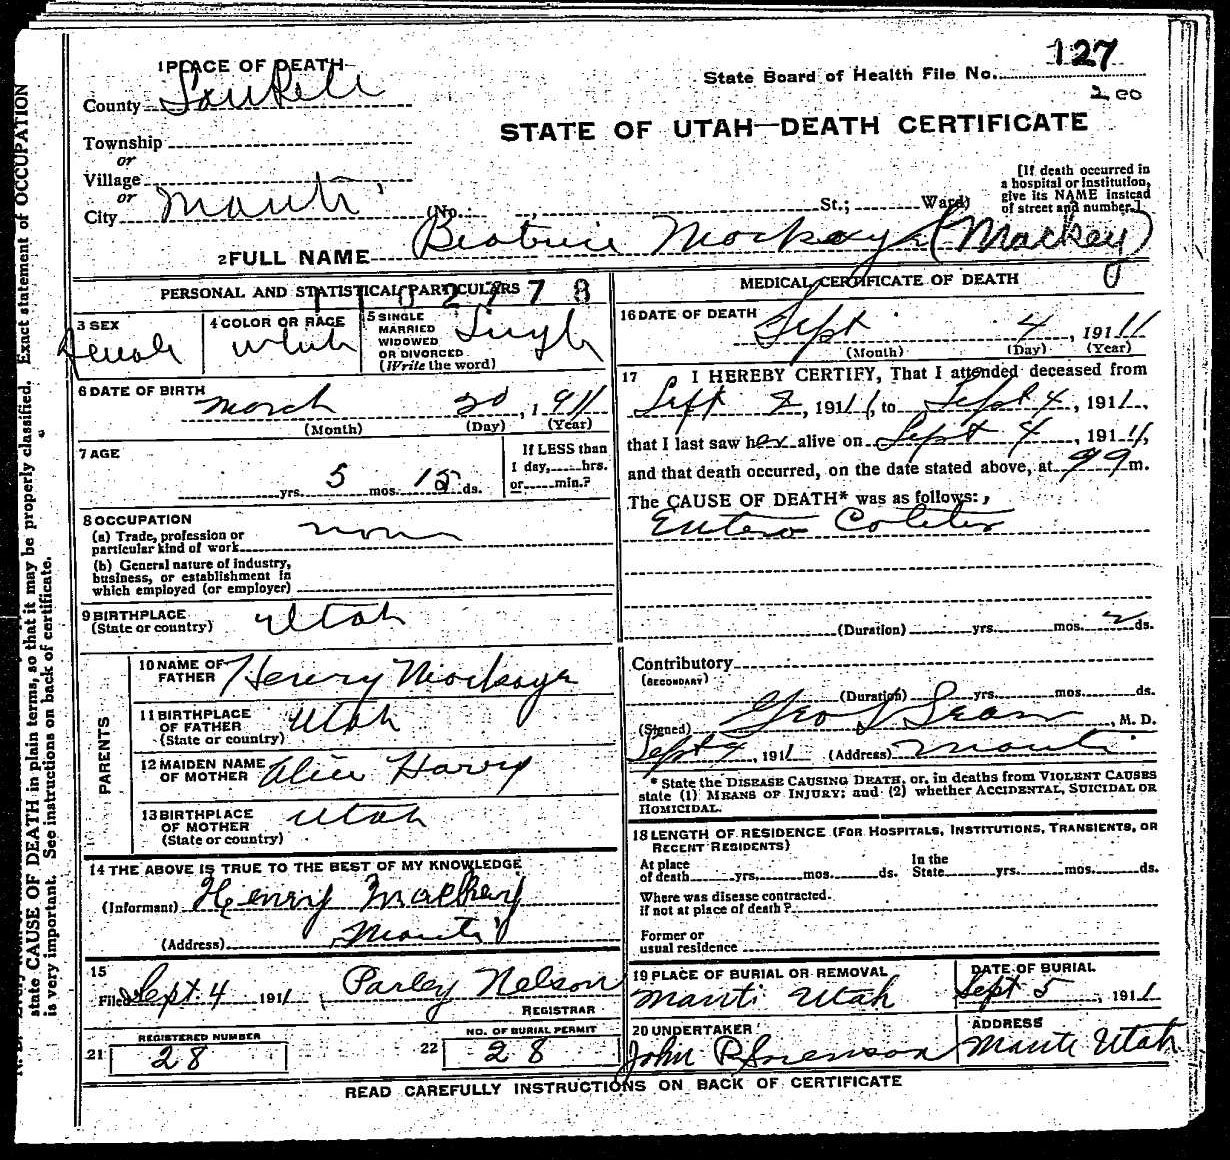 1 PLACE OF DEATH
State Board of Health File No. 127
County Sanpete
200
STATE OF UTAH—DEATH CERTIFICATE
Township
or
Village
or
City Manti (No. , St.; Ward)
[If death occurred in
a hospital or institution,
give its NAME instead
of street and number.]
2 FULL NAME Beatrice Mockay (Mackey)
PERSONAL AND STATISTICAL PARTICULARS
3 SEX Female
4 COLOR OR RACE White
5 SINGLE
MARRIED
WIDOWED
OR DIVORCED
(Write the word) Single
6 DATE OF BIRTH
March 20, 1911
(Month) (Day) (Year)
7 AGE
yrs. 5 mos. 15 ds.
If LESS than
1 day, hrs.
or min.?
8 OCCUPATION
(a) Trade, profession or
particular kind of work none
(b) General nature of industry,
business, or establishment in
which employed (or employer)
9 BIRTHPLACE
(State or country) Utah
PARENTS
10 NAME OF
FATHER Henry Mockaye
11 BIRTHPLACE
OF FATHER
(State or country) Utah
12 MAIDEN NAME
OF MOTHER Alice Harry
13 BIRTHPLACE
OF MOTHER
(State or country) Utah
14 THE ABOVE IS TRUE TO THE BEST OF MY KNOWLEDGE
(Informant) Henry Mackey
(Address) Manti
15
Filed Sept. 4 1911 Parley Nelson
REGISTRAR
21 REGISTERED NUMBER
28
22 NO. OF BURIAL PERMIT
28
MEDICAL CERTIFICATE OF DEATH
16 DATE OF DEATH
Sept 4, 1911
(Month) (Day) (Year)
17 I HEREBY CERTIFY, That I attended deceased from
Sept 2, 1911, to Sept 4, 1911,
that I last saw her alive on Sept 4, 1911,
and that death occurred, on the date stated above, at 9 m.
The CAUSE OF DEATH* was as follows:
Entero Colitis
(Duration) yrs. mos. 2 ds.
Contributory
(SECONDARY)
(Duration) yrs. mos. ds.
(Signed) Geo L Sears, M. D.
Sept 4, 1911 (Address) Manti
* State the DISEASE CAUSING DEATH, or, in deaths from VIOLENT CAUSES
state (1) MEANS OF INJURY; and (2) whether ACCIDENTAL, SUICIDAL OR
HOMICIDAL.
18 LENGTH OF RESIDENCE (FOR HOSPITALS, INSTITUTIONS, TRANSIENTS, OR
RECENT RESIDENTS)
At place
of death yrs. mos. ds. In the
State yrs. mos. ds.
Where was disease contracted.
if not at place of death?
Former or
usual residence
19 PLACE OF BURIAL OR REMOVAL
Manti Utah
DATE OF BURIAL
Sept 5, 1911
20 UNDERTAKER
John P Sorenson
ADDRESS
Manti Utah
READ CAREFULLY INSTRUCTIONS ON BACK OF CERTIFICATE
state CAUSE OF DEATH in plain terms, so that it may be properly classified. Exact statement of OCCUPATION
is very important. See instructions on back of certificate.